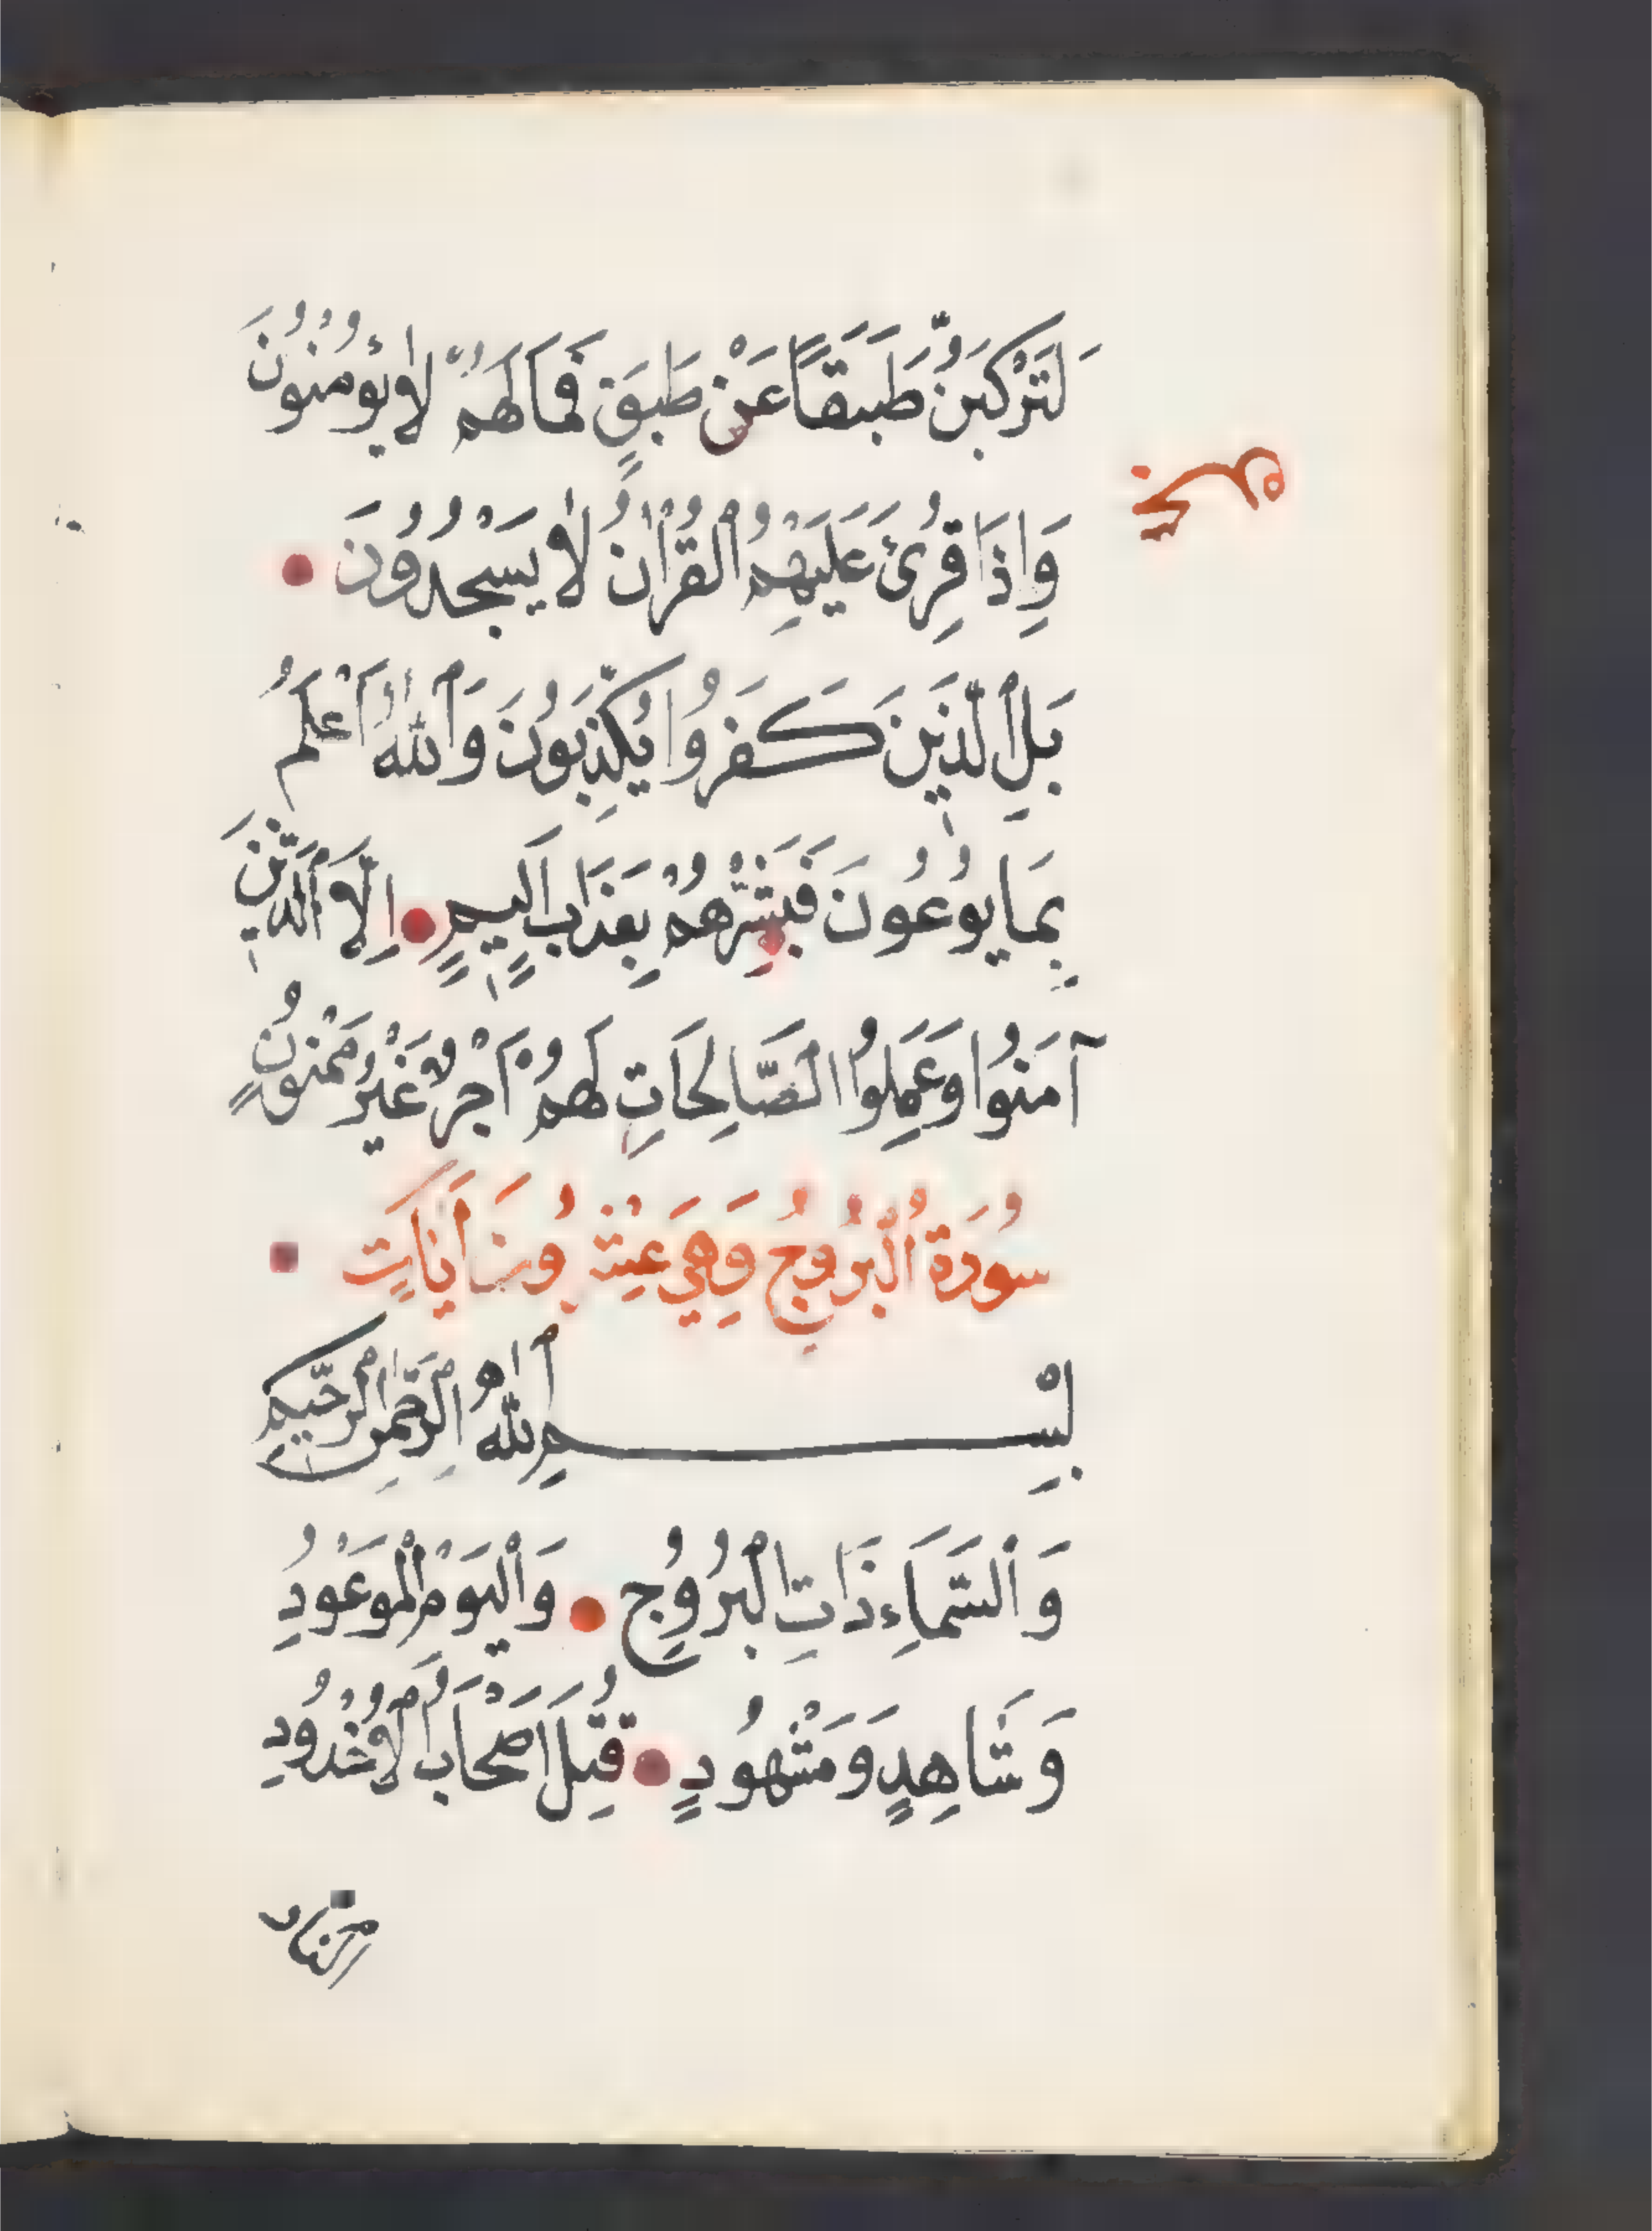 لَتَرْكَبُنَّ طَبَقًا عَنْ طَبَقٍ فَمَا لَهُمْ لَا يُؤْمِنُونَ
وَاِذَا قُرِئَ عَلَيْهِمُ الْقُرْاٰنُ لَا يَسْجُدُونَ
بَلِ الَّذِينَ كَفَرُوا يُكَذِّبُونَ وَاللّٰهُ اَعْلَمُ
بِمَا يُوعُونَ فَبَشِّرْهُمْ بِعَذَابٍ اَلِيمٍ اِلَّا الَّذِينَ
آمَنُوا وَعَمِلُوا الصَّالِحَاتِ لَهُمْ اَجْرٌ غَيْرُ مَمْنُونٍ
سُورَةُ الْبُرُوجِ وَهِيَ عِشْرُونَ اٰيَاتٍ
بِسْمِ اللّٰهِ الرَّحْمٰنِ الرَّحِيمِ
وَالسَّمَاءِ ذَاتِ الْبُرُوجِ وَالْيَوْمِ الْمَوْعُودِ
وَشَاهِدٍ وَمَشْهُودٍ قُتِلَ اَصْحَابُ الْاُخْدُودِ
النار